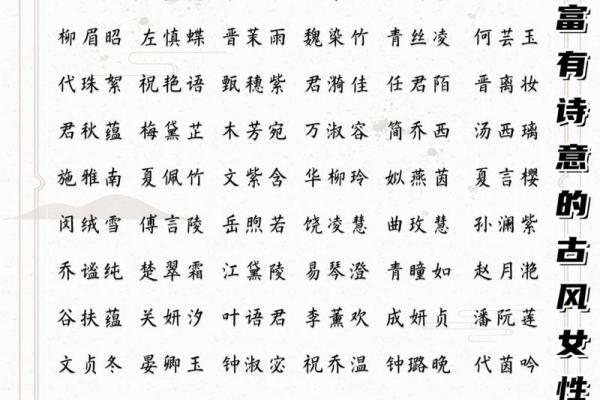 柳眉昭 左慎蝶 晋茉雨 魏染竹 青丝凌 何芸玉
代珠絮 祝艳语 甄穗紫 君漪佳 任君陌 晋离妆
君秋蕴 梅黛芷 木芳宛 万淑容 简乔西 汤西璃
施雅南 夏佩竹 文紫含 华柳玲 姒燕茵 夏言樱
闵绒雪 傅言陵 岳煦若 饶凌慧 曲玫慧 孙澜紫
乔谧纯 楚翠霜 江黛陵 易琴澄 青瞳如 赵月滟
谷扶蕴 关妍汐 叶语君 李薰欢 成妍贞 潘阮莲
文贞冬 晏卿玉 钟淑宓 祝乔温 钟璐晚 代茵吟
富有诗意的古风女性